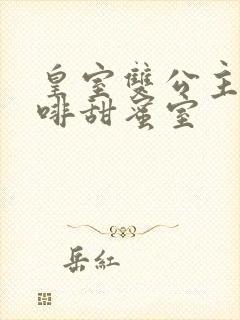 皇室雙公主
啡甜蜜室
岳紅